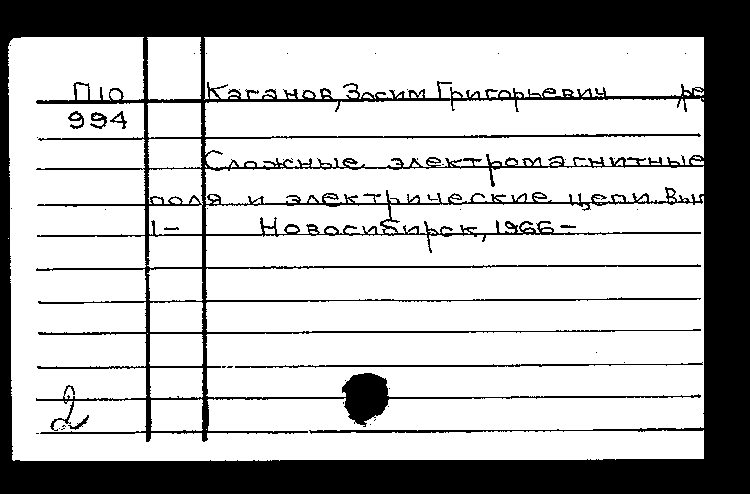 П10 Каганов, Зосим Григорьевич ре
994
Сложные электромагнитные
поля и электрические цепи. Вып
1- Новосибирск, 1966-
2